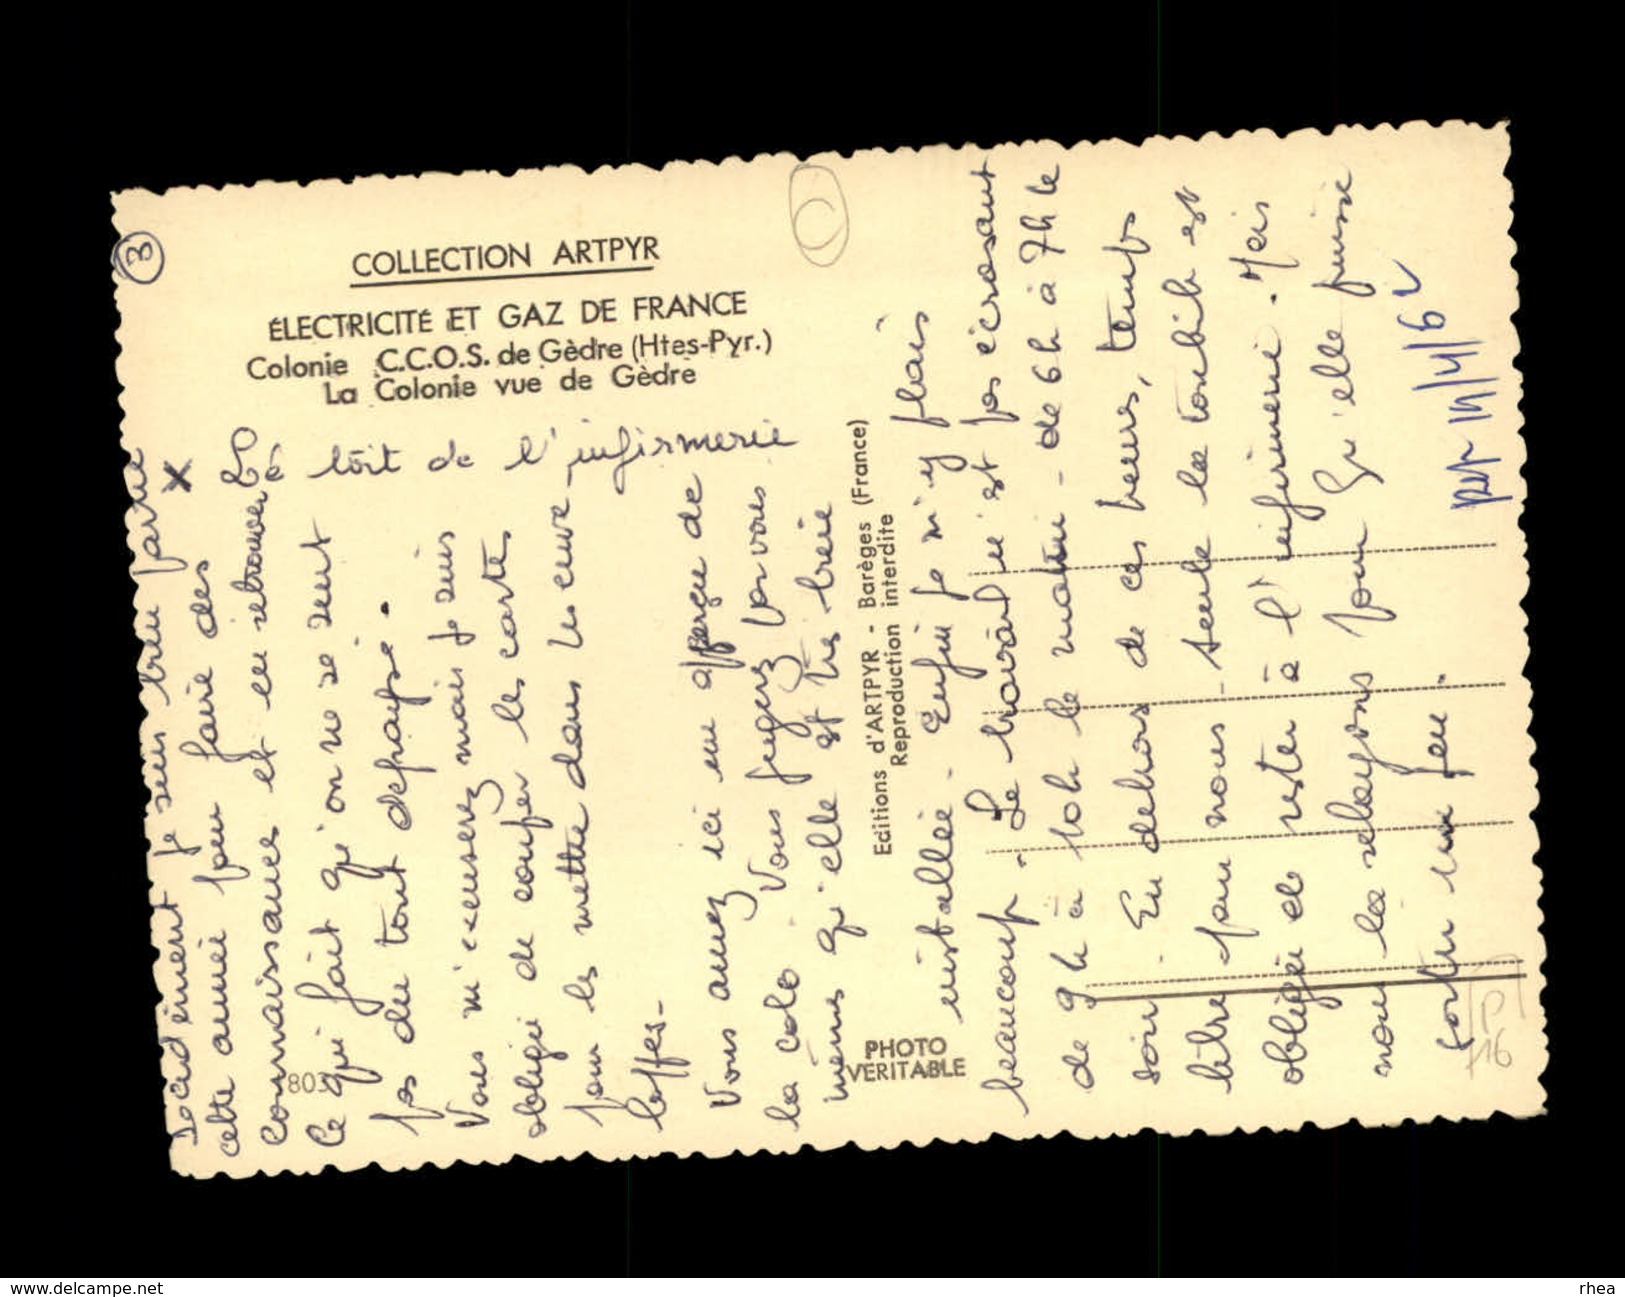 3
COLLECTION ARTPYR
ÉLECTRICITÉ ET GAZ DE FRANCE
Colonie C.C.O.S. de Gèdre (Htes-Pyr.)
La Colonie vue de Gèdre
x toit de l'infirmerie
Décidément je suis bien partie
cette année pour faire des
connaissances et en retrouver
Ce qui fait qu'on ne se sent
pas du tout dépaysé.
Vous m'excuserez mais je suis
obligée de couper les cartes
pour les mettre dans les enve-
loppes-
Vous avez ici un aperçu de
la colo. Vous jugerez par vous
même qu'elle est très bien
installée. Enfin je m'y plais
beaucoup. Le travail n'est pas écrasant
de 9h à 10h le matin - de 6h à 7h le
soir. En dehors de ces heures, temps
libre pour nous - seule la toubib est
obligée de rester à l'infirmerie. Mais
nous la relayons pour qu'elle puisse
sortir un peu.
803
PHOTO
VERITABLE
Editions d'ARTPYR - Barèges (France)
Reproduction interdite
P
16
rhea
https://www.delcampe.net